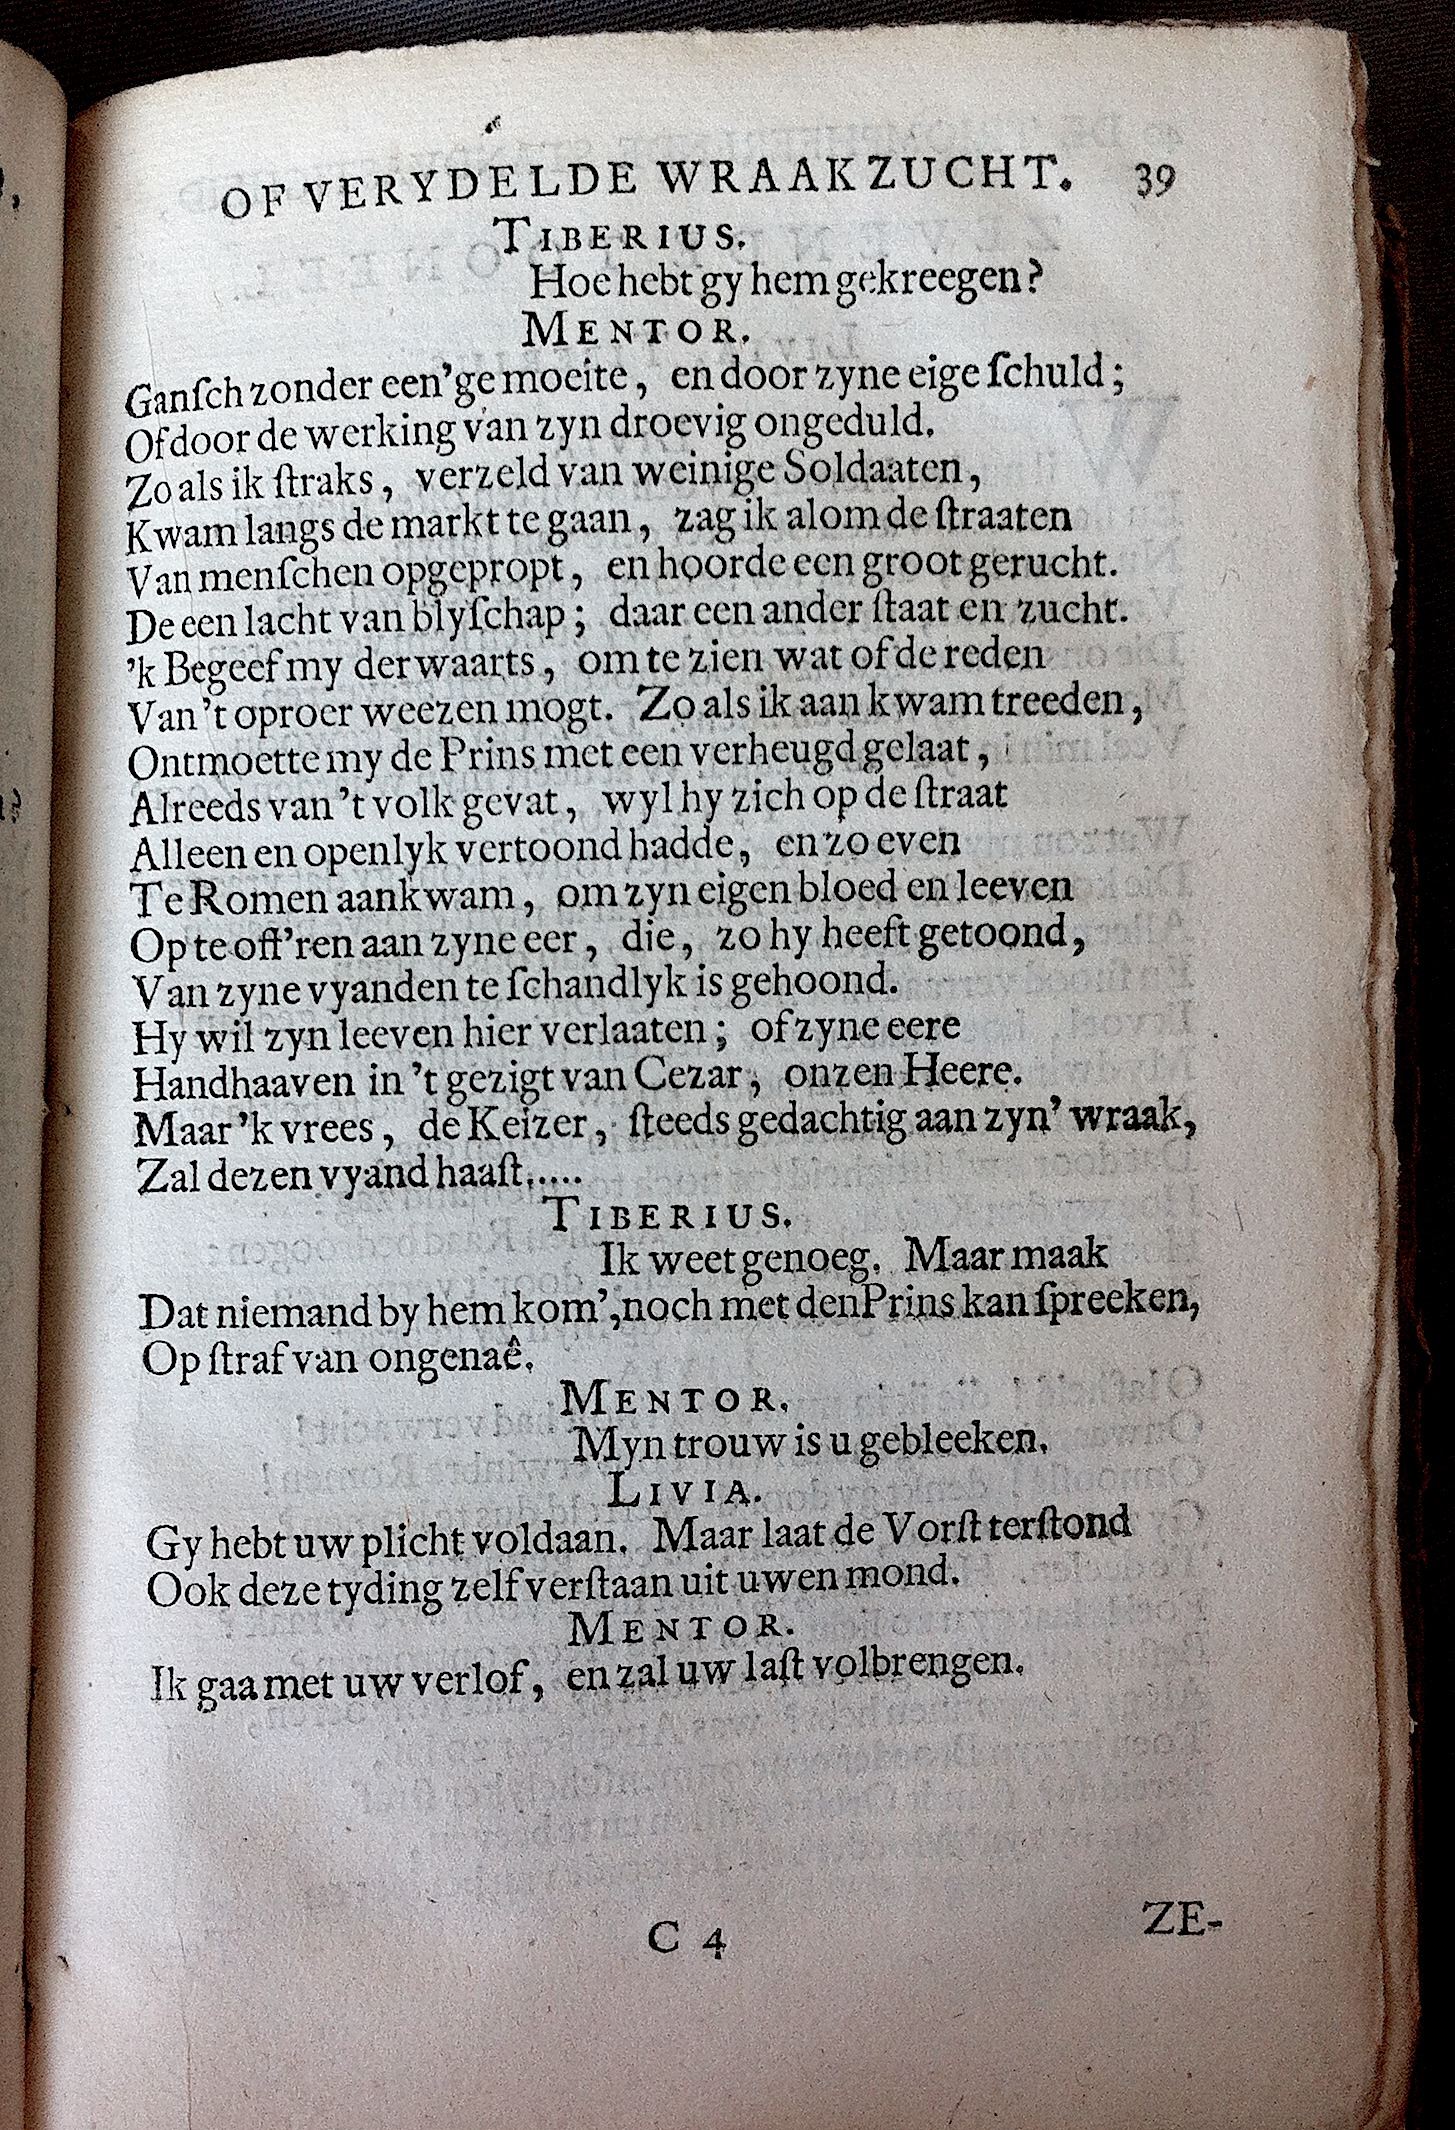 OF VERYDELDE WRAAKZUCHT. 39
TIBERIUS.
Hoe hebt gy hem gekreegen?
MENTOR.
Ganſch zonder een'ge moeite, en door zyne eige ſchuld;
Of door de werking van zyn droevig ongeduld.
Zo als ik ſtraks, verzeld van weinige Soldaaten,
Kwam langs de markt te gaan, zag ik alom de ſtraaten
Van menſchen opgepropt, en hoorde een groot gerucht.
De een lacht van blyſchap; daar een ander ſtaat en zucht.
'k Begeef my derwaarts, om te zien wat of de reden
Van 't oproer weezen mogt. Zo als ik aan kwam treeden,
Ontmoette my de Prins met een verheugd gelaat,
Alreeds van 't volk gevat, wyl hy zich op de ſtraat
Alleen en openlyk vertoond hadde, en zo even
Te Romen aankwam, om zyn eigen bloed en leeven
Op te off'ren aan zyne eer, die, zo hy heeft getoond,
Van zyne vyanden te ſchandlyk is gehoond.
Hy wil zyn leeven hier verlaaten; of zyne eere
Handhaaven in 't gezigt van Cezar, onzen Heere.
Maar 'k vrees, de Keizer, ſteeds gedachtig aan zyn' wraak,
Zal dezen vyand haaſt.....
TIBERIUS.
Ik weet genoeg. Maar maak
Dat niemand by hem kom', noch met den Prins kan ſpreeken,
Op ſtraf van ongenaê.
MENTOR.
Myn trouw is u gebleeken.
LIVIA.
Gy hebt uw plicht voldaan. Maar laat de Vorſt terſtond
Ook deze tyding zelf verſtaan uit uwen mond.
MENTOR.
Ik gaa met uw verlof, en zal uw laſt volbrengen.
C 4 ZE-